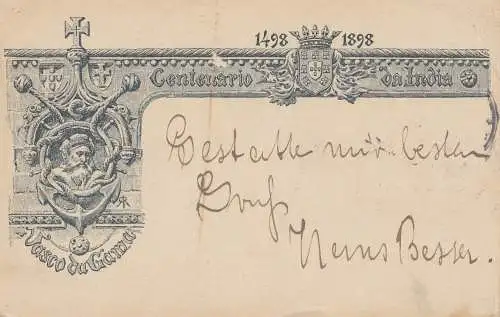 1498 1898
Centenario da India
Vasco da Gama
AR
Gestatte mir besten
Gruß
Besser.